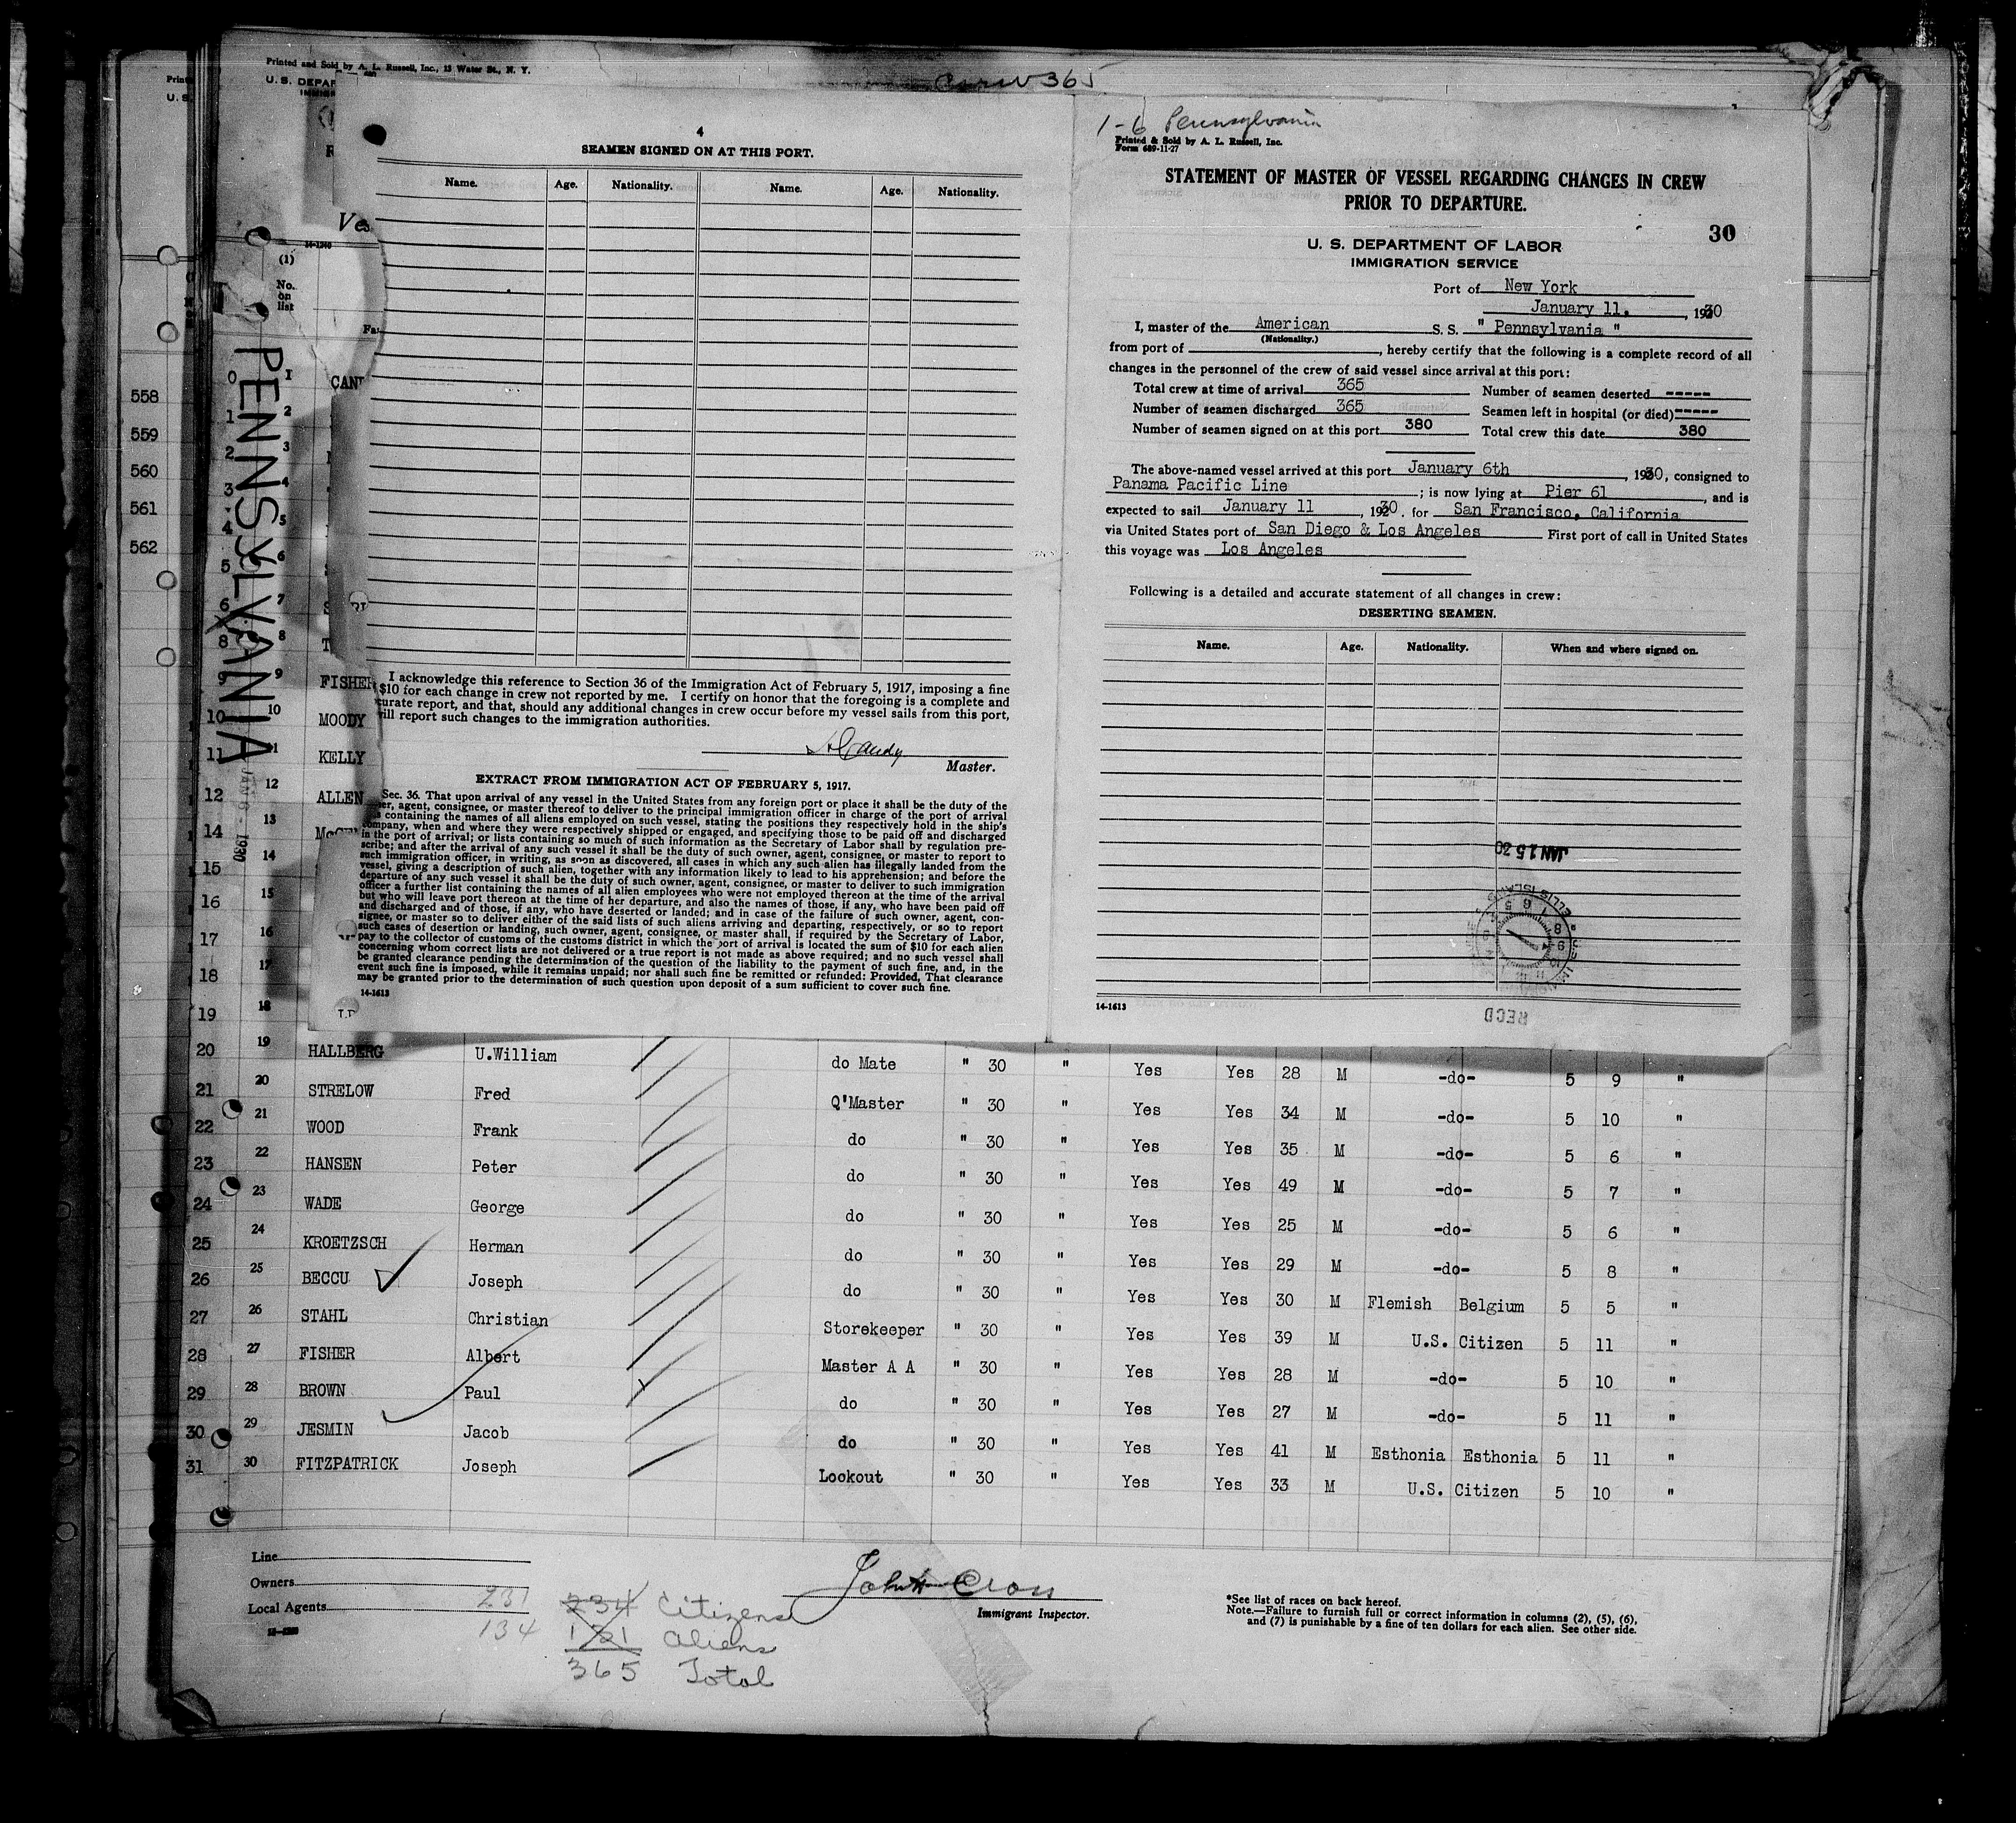 Printed and Sold by A. L. Russell, Inc., 13 Water St., N. Y.
U. S. DEPAR
Crew 365
4
SEAMEN SIGNED ON AT THIS PORT.
Name. Age. Nationality. Name. Age. Nationality.
I acknowledge this reference to Section 36 of the Immigration Act of February 5, 1917, imposing a fine
$10 for each change in crew not reported by me. I certify on honor that the foregoing is a complete and
curate report, and that, should any additional changes in crew occur before my vessel sails from this port,
will report such changes to the immigration authorities.
Master.
EXTRACT FROM IMMIGRATION ACT OF FEBRUARY 5, 1917.
Sec. 36. That upon arrival of any vessel in the United States from any foreign port or place it shall be the duty of the
er, agent, consignee, or master thereof to deliver to the principal immigration officer in charge of the port of arrival
containing the names of all aliens employed on such vessel, stating the positions they respectively hold in the ship's
company, when and where they were respectively shipped or engaged, and specifying those to be paid off and discharged
in the port of arrival; or lists containing so much of such information as the Secretary of Labor shall by regulation pre-
scribe; and after the arrival of any such vessel it shall be the duty of such owner, agent, consignee, or master to report to
such immigration officer, in writing, as soon as discovered, all cases in which any such alien has illegally landed from the
vessel, giving a description of such alien, together with any information likely to lead to his apprehension; and before the
departure of any such vessel it shall be the duty of such owner, agent, consignee, or master to deliver to such immigration
officer a further list containing the names of all alien employees who were not employed thereon at the time of the arrival
but who will leave port thereon at the time of her departure, and also the names of those, if any, who have been paid off
and discharged and of those, if any, who have deserted or landed; and in case of the failure of such owner, agent, con-
signee, or master so to deliver either of the said lists of such aliens arriving and departing, respectively, or so to report
such cases of desertion or landing, such owner, agent, consignee, or master shall, if required by the Secretary of Labor,
pay to the collector of customs of the customs district in which the port of arrival is located the sum of $10 for each alien
concerning whom correct lists are not delivered or a true report is not made as above required; and no such vessel shall
be granted clearance pending the determination of the question of the liability to the payment of such fine, and, in the
event such fine is imposed, while it remains unpaid; nor shall such fine be remitted or refunded: Provided, That clearance
may be granted prior to the determination of such question upon deposit of a sum sufficient to cover such fine.
14-1613
1-6 Pennsylvania
Printed & Sold by A. L. Russell, Inc.
Form 689-11-27
STATEMENT OF MASTER OF VESSEL REGARDING CHANGES IN CREW
PRIOR TO DEPARTURE.
30
U. S. DEPARTMENT OF LABOR
IMMIGRATION SERVICE
Port of New York
January 11, 1930
I, master of the American S. S. " Pennsylvania "
(Nationality.)
from port of , hereby certify that the following is a complete record of all
changes in the personnel of the crew of said vessel since arrival at this port:
Total crew at time of arrival 365 Number of seamen deserted -----
Number of seamen discharged 365 Seamen left in hospital (or died) -----
Number of seamen signed on at this port 380 Total crew this date 380
The above-named vessel arrived at this port January 6th, 1930, consigned to
Panama Pacific Line ; is now lying at Pier 61, and is
expected to sail January 11, 1930. for San Francisco, California
via United States port of San Diego & Los Angeles First port of call in United States
this voyage was Los Angeles
Following is a detailed and accurate statement of all changes in crew:
DESERTING SEAMEN.
Name. Age. Nationality. When and where signed on.
JAN 15 30
ELLIS ISLAND
REC'D
14-1613
PENNSYLVANIA
JAN 6 - 1930
Ves
14-1240
(1)
No. on list
558
559
560
561
562
CANT
9 9 FISHER
10 10 MOODY
11 11 KELLY
12 12 ALLEN
20 19 HALLBERG U.William do Mate " 30 " Yes Yes 28 M -do- 5 9 "
21 20 STRELOW Fred Q'Master " 30 " Yes Yes 34 M -do- 5 10 "
22 21 WOOD Frank do " 30 " Yes Yes 35 M -do- 5 6 "
23 22 HANSEN Peter do " 30 " Yes Yes 49 M -do- 5 7 "
24 23 WADE George do " 30 " Yes Yes 25 M -do- 5 6 "
25 24 KROETZSCH Herman do " 30 " Yes Yes 29 M -do- 5 8 "
26 25 BECCU Joseph do " 30 " Yes Yes 30 M Flemish Belgium 5 5 "
27 26 STAHL Christian Storekeeper " 30 " Yes Yes 39 M U.S. Citizen 5 11 "
28 27 FISHER Albert Master A A " 30 " Yes Yes 28 M -do- 5 10 "
29 28 BROWN Paul do " 30 " Yes Yes 27 M -do- 5 11 "
30 29 JESMIN Jacob do " 30 " Yes Yes 41 M Esthonia Esthonia 5 11 "
31 30 FITZPATRICK Joseph Lookout " 30 " Yes Yes 33 M U.S. Citizen 5 10 "
Line
Owners
Local Agents
231 234 Citizens
134 131 aliens
365 Total
John H Cross
Immigrant Inspector.
*See list of races on back hereof.
Note.—Failure to furnish full or correct information in columns (2), (5), (6),
and (7) is punishable by a fine of ten dollars for each alien. See other side.